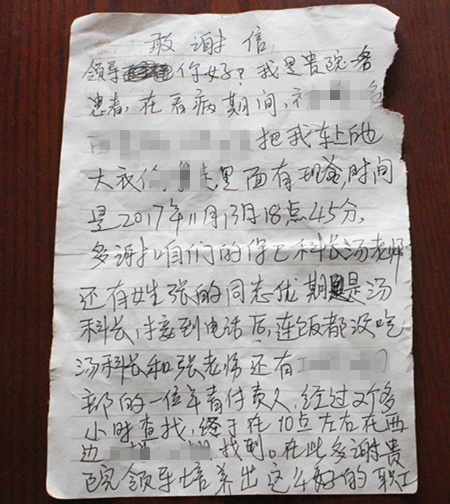 敢谢信
领导 你好？我是贵院一名
患者，在看病期间，
把我车上的
大衣 里面有现金，时间
是2017年11月13日18点45分，
多谢 咱们的保卫科长汤老师
还有姓张的同志优期是汤
科长，接到电话后，连饭都没吃
汤科长和张老师还有
部的一位年青付责人，经过2个多
小时查找，终于在10点左右在西
边 找到。在此多谢贵
院领导培养出这么好的职工